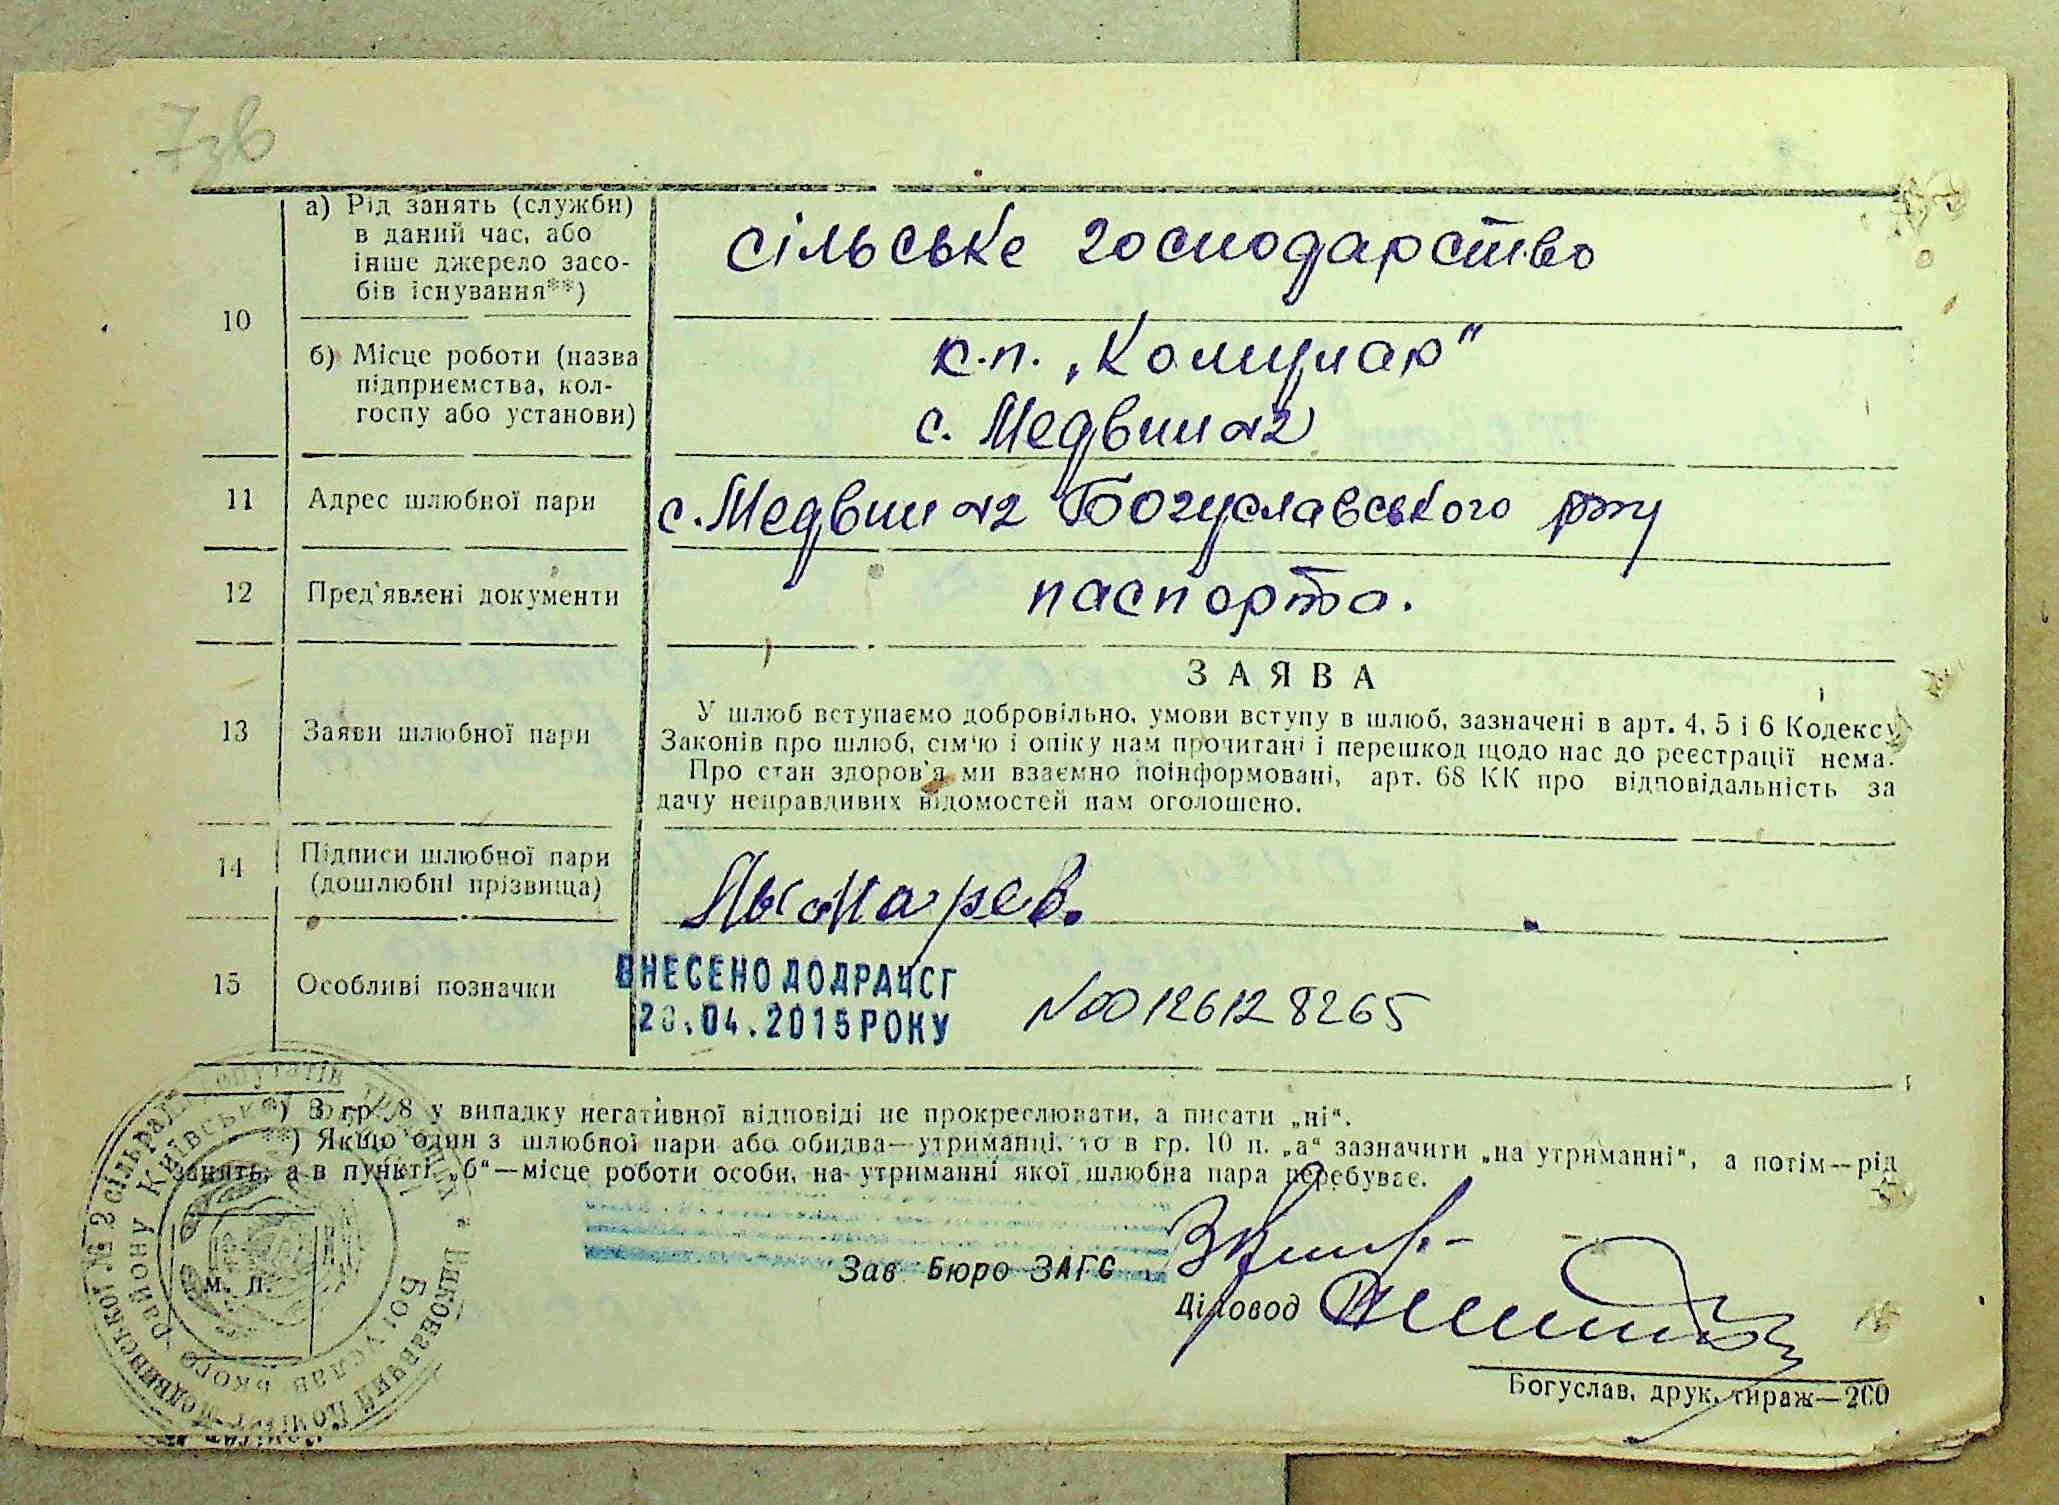 7зв
а) Рід занять (служби)
в даний час, або
інше джерело засо-
бів існування**)
сільське господарство
10
б) Місце роботи (назва
підприємства, кол-
госпу або установи)
к.п. „Комунар"
с. Медвин №2
11 Адрес шлюбної пари с. Медвин №2 Богуславського р-ну
12 Пред'явлені документи паспорта.
ЗАЯВА
13 Заяви шлюбної пари
У шлюб вступаємо добровільно, умови вступу в шлюб, зазначені в арт. 4, 5 і 6 Кодексу
Законів про шлюб, сім'ю і опіку нам прочитані і перешкод щодо нас до реєстрації нема.
Про стан здоров'я ми взаємно поінформовані, арт. 68 КК про відповідальність за
дачу неправдивих відомостей нам оголошено.
14 Підписи шлюбної пари
(дошлюбні прізвища)
15 Особливі позначки
ВНЕСЕНО ДО ДРАЦСГ
.04.2015 РОКУ
№00126128265
*) В гр. 8 у випадку негативної відповіді не прокреслювати, а писати „ні".
**) Якщо один з шлюбної пари або обидва—утриманці, то в гр. 10 п. „а" зазначити „на утриманні", а потім—рід
занять, а в пункті „б"—місце роботи особи, на утриманні якої шлюбна пара перебуває.
Зав Бюро ЗАГС
М. П.
Діловод
Богуслав, друк. тираж—200
Виконавчий комітет Медвинської № 2 сільради депутатів трудящих
Богуславського району Київської